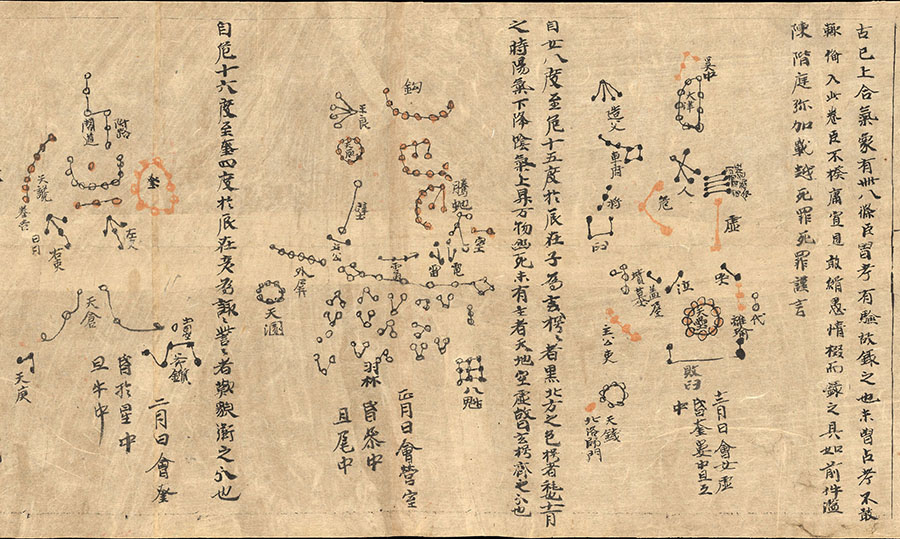 古已上合氣象有卌八條臣曾考有驗故錄之也未曾占考不敢
輒脩入此卷臣不揆庸寡見敢緝愚情掇而錄之具如前件滥
陳階庭弥加戰越死罪死罪謹言
天津
造父
車府
人
危
虛
杵
臼
哭
泣
墳墓
蓋屋
離瑜
代
敗臼
天錢
北落師門
十二月日會女虛
昏奎婁中旦互
中
自女八度至危十五度於辰在子為玄枵〻者黑北方之色枵者耗也十一月
之時陽氣下降陰氣上昇万物幽死未有生者天地空虛故曰玄枵齊之分也
鈎
王良
天廄
騰蛇
壁
土公
雷
電
空
外屏
天溷
羽林
八魁
正月日會營室
昏參中
旦尾中
自危十六度至奎四度於辰在亥為諏訾〻者歎貌衛之分也
閣道
附路
奎
左更
右更
天倉
鈇鑕
天庾
二月日會奎
昏於星中
旦牛中